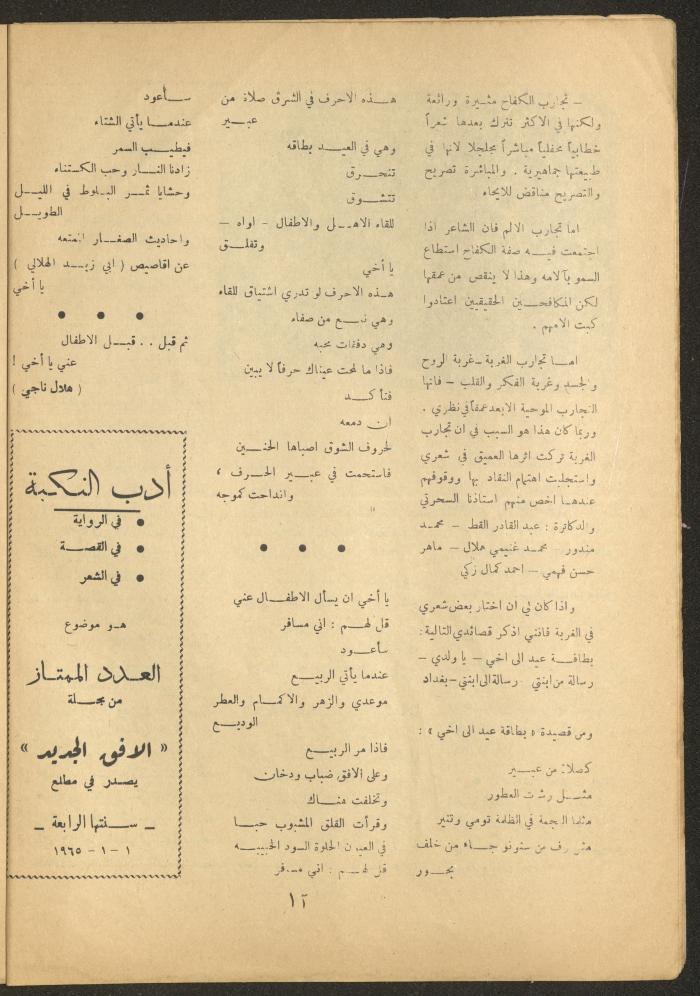 – تجارب الكفاح مثيرة ورائعة
ولكنها في الاكثر تترك بعدها شعراً
خطابياً محفلياً مباشراً مجلجلا لانها في
طبيعتها جماهيرية . والمباشرة تصريح
والتصريح مناقض للايحاء
اما تجارب الالم فان الشاعر اذا
اجتمعت فيه صفة الكفاح استطاع
السمو بآلامه وهذا لا ينقص من عمقها
لكن المكافحين الحقيقيين اعتادوا
كبت الامهم .
اما تجارب الغربة – غربة الروح
والجسد وغربة الفكر والقلب – فانها
التجارب الموحية الابعد عمقاً في نظري .
وربما كان هذا هو السبب في ان تجارب
الغربة تركت اثرها العميق في شعري
واستجلبت اهتمام النقاد بها ووقوفهم
عندها اخص منهم استاذنا السحرتي
والدكاترة : عبد القادر القط – محمد
مندور – محمد غنيمي هلال – ماهر
حسن فهمي – احمد كمال زكي
واذا كان لي ان اختار بعض شعري
في الغربة فانني اذكر قصائدي التالية :
بطاقة عيد الى اخي – يا ولدي –
رسالة من ابنتي – رسالة الى ابنتي – بغداد
ومن قصيدة « بطاقة عيد الى اخي » :
كصلاة من عبير
مثل رشات العطور
مثلما النجمة في الظلمة تومي وتنير
مثل رف من سنونو جاء من خلف
بحور
هذه الاحرف في الشرق صلاة من
عبير
وهي في العيد بطاقه
تتحرق
تتشوق
للقاء الاهل والاطفال – اواه –
وتقلق
يا أخي
هذه الاحرف لو تدري اشتياق للقاء
وهي نبع من صفاء
وهي دفقات محبه
فاذا ما لمحت عيناك حرفاً لا يبين
فتأكد
ان دمعه
لحروف الشوق اصباها الحنين
فاستحمت في عبير الحرف ،
وانداحت كموجه
• • •
يا أخي ان يسأل الاطفال عني
قل لهم : اني مسافر
سأعود
عندما يأتي الربيع
موعدي والزهر والاكمام والعطر
الوديع
فاذا مر الربيع
وعلى الافق ضباب ودخان
وتخلفت هناك
وقرأت القلق المشبوب حبا
في العيون الحلوة السود الحبيبه
قل لهم : اني مسافر
سأعود
عندما يأتي الشتاء
فيطيب السمر
زادنا النار وحب الكستناء
وحشايا ثمر البلوط في الليل
الطويل
واحاديث الصغار الممتعه
عن اقاصيص ( ابي زيد الهلالي )
يا أخي
• • •
ثم قبل . . قبل الاطفال
عني يا أخي !
( هلال ناجي )
أدب النكبة
• في الرواية
• في القصة
• في الشعر
هو موضوع
العدد الممتاز
من مجلة
« الافق الجديد »
يصدر في مطلع
– سنتها الرابعة –
١ – ١ – ١٩٦٥
٢١